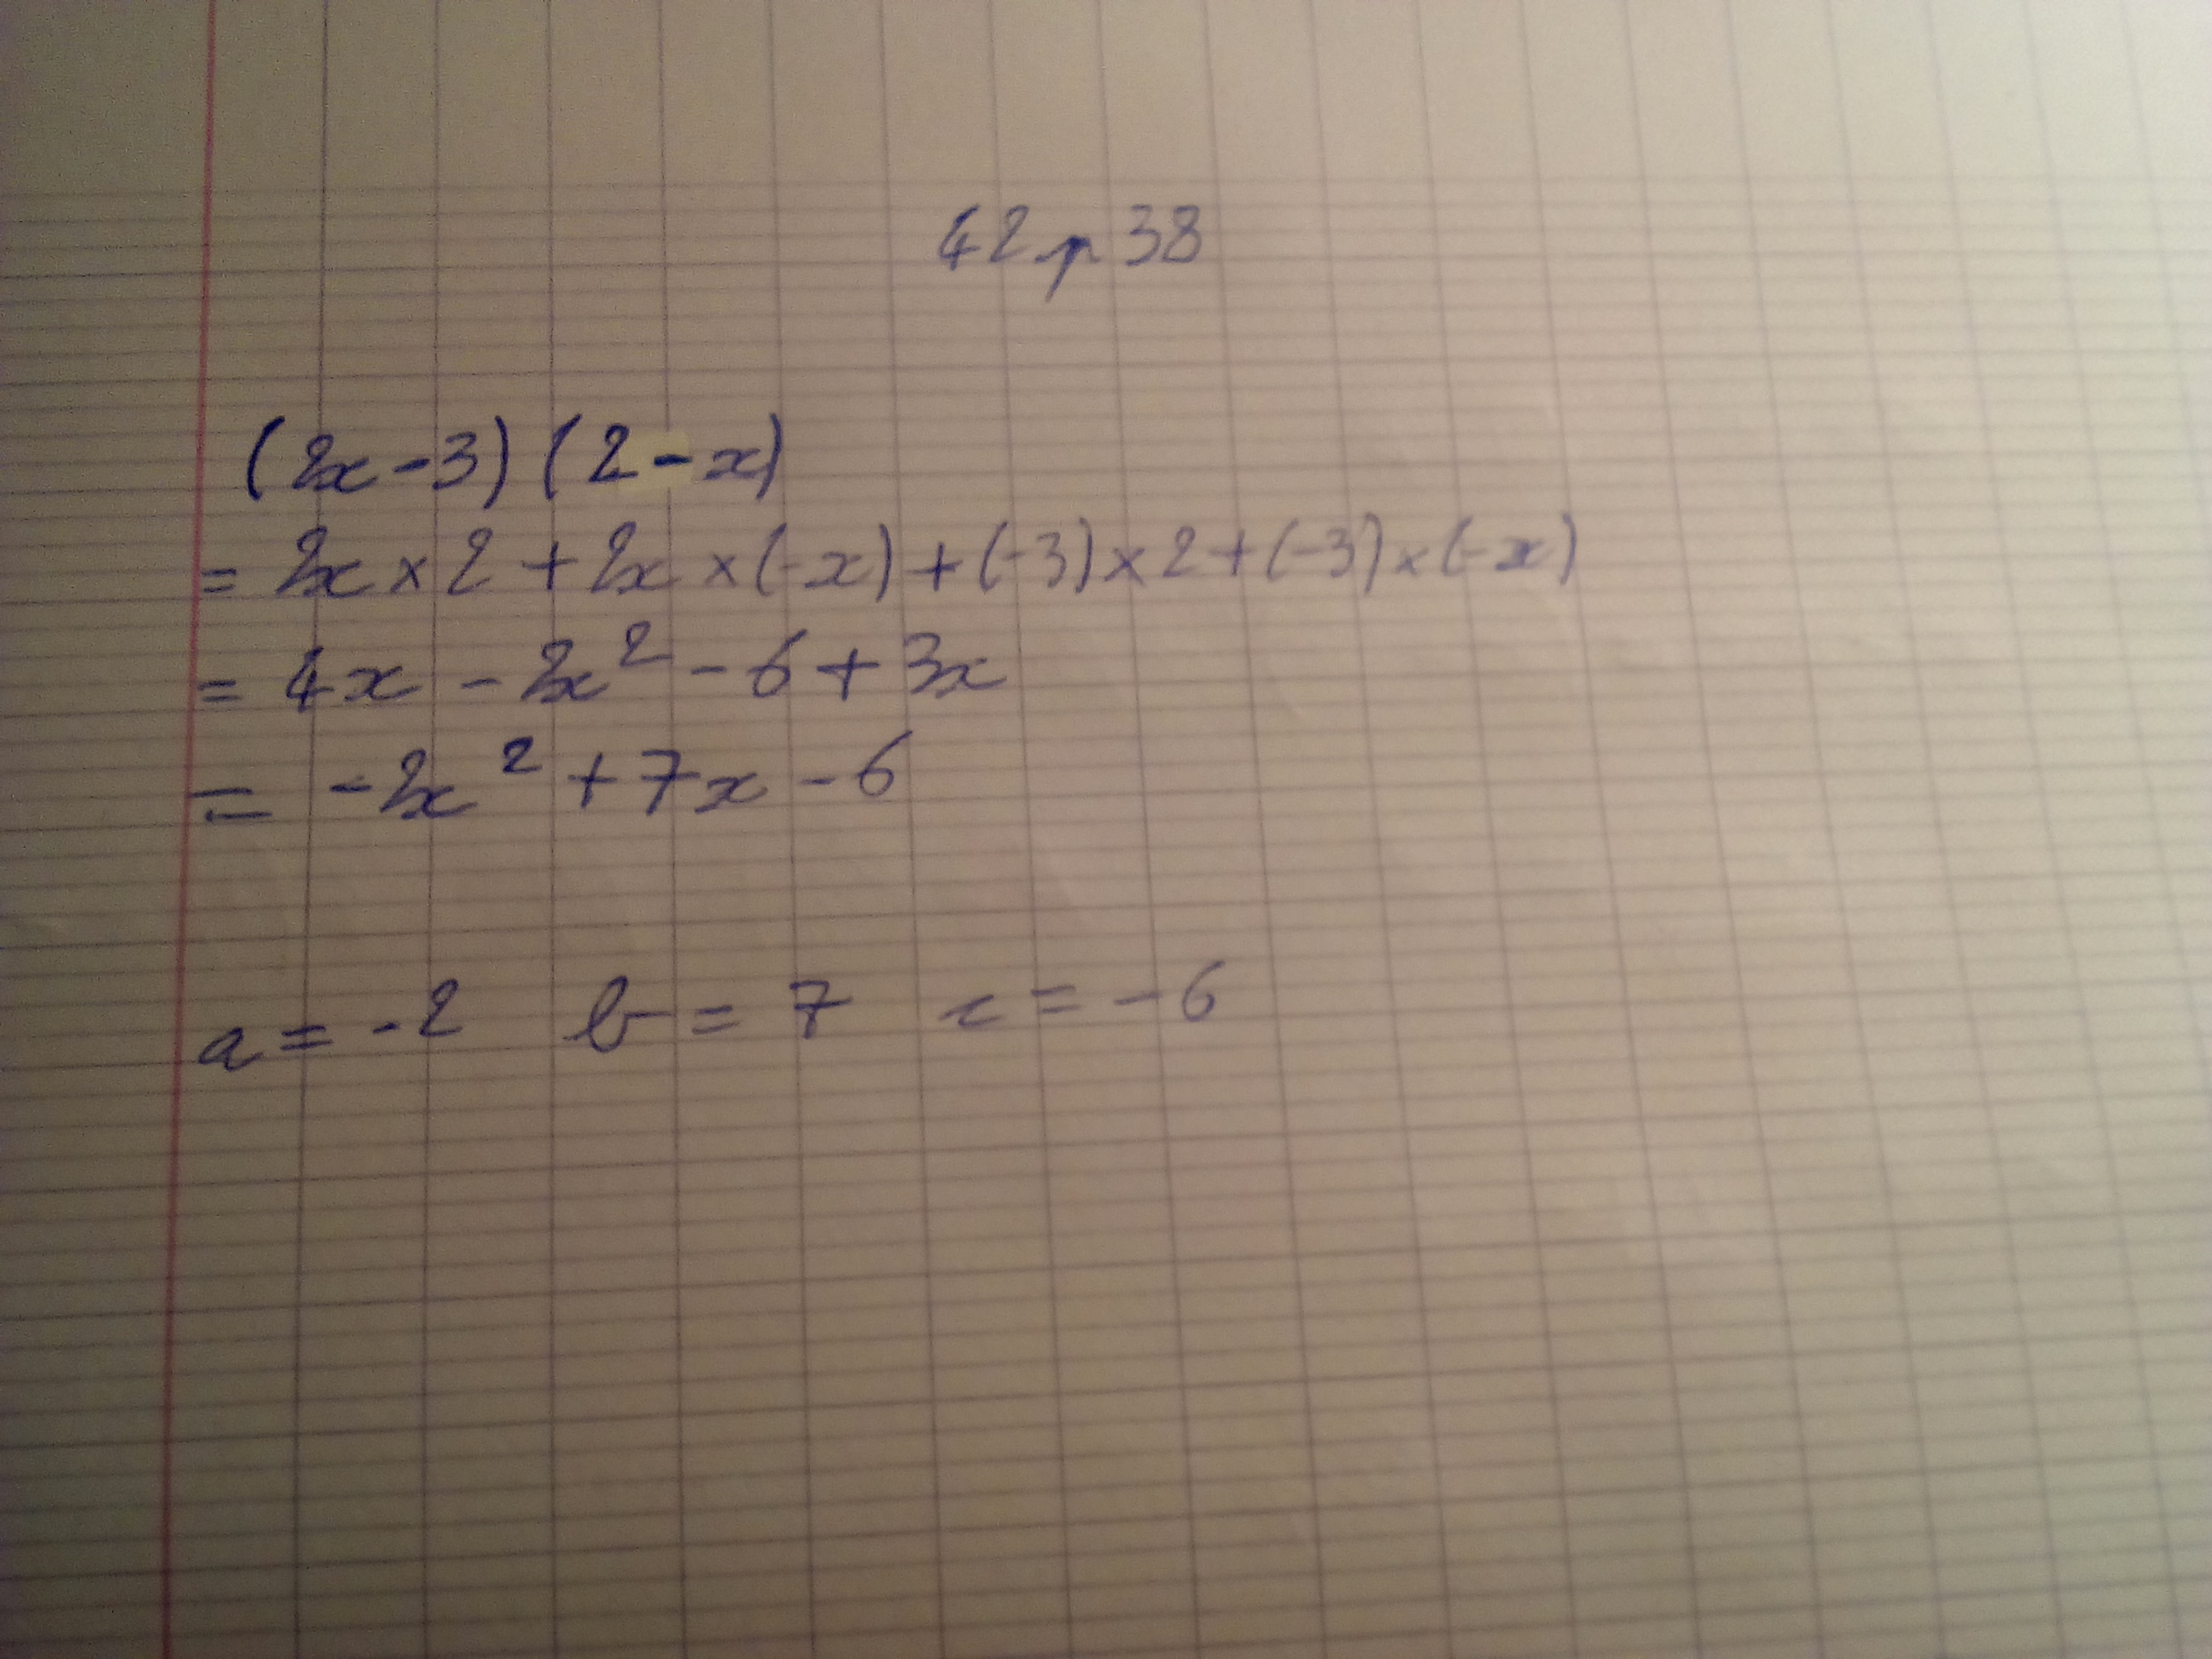 42 p 38
(2x-3)(2-x)
= 2x × 2 + 2x × (-x) + (-3) × 2 + (-3) × (-x)
= 4x - 2x² - 6 + 3x
= -2x² + 7x - 6
a = -2 b = 7 c = -6